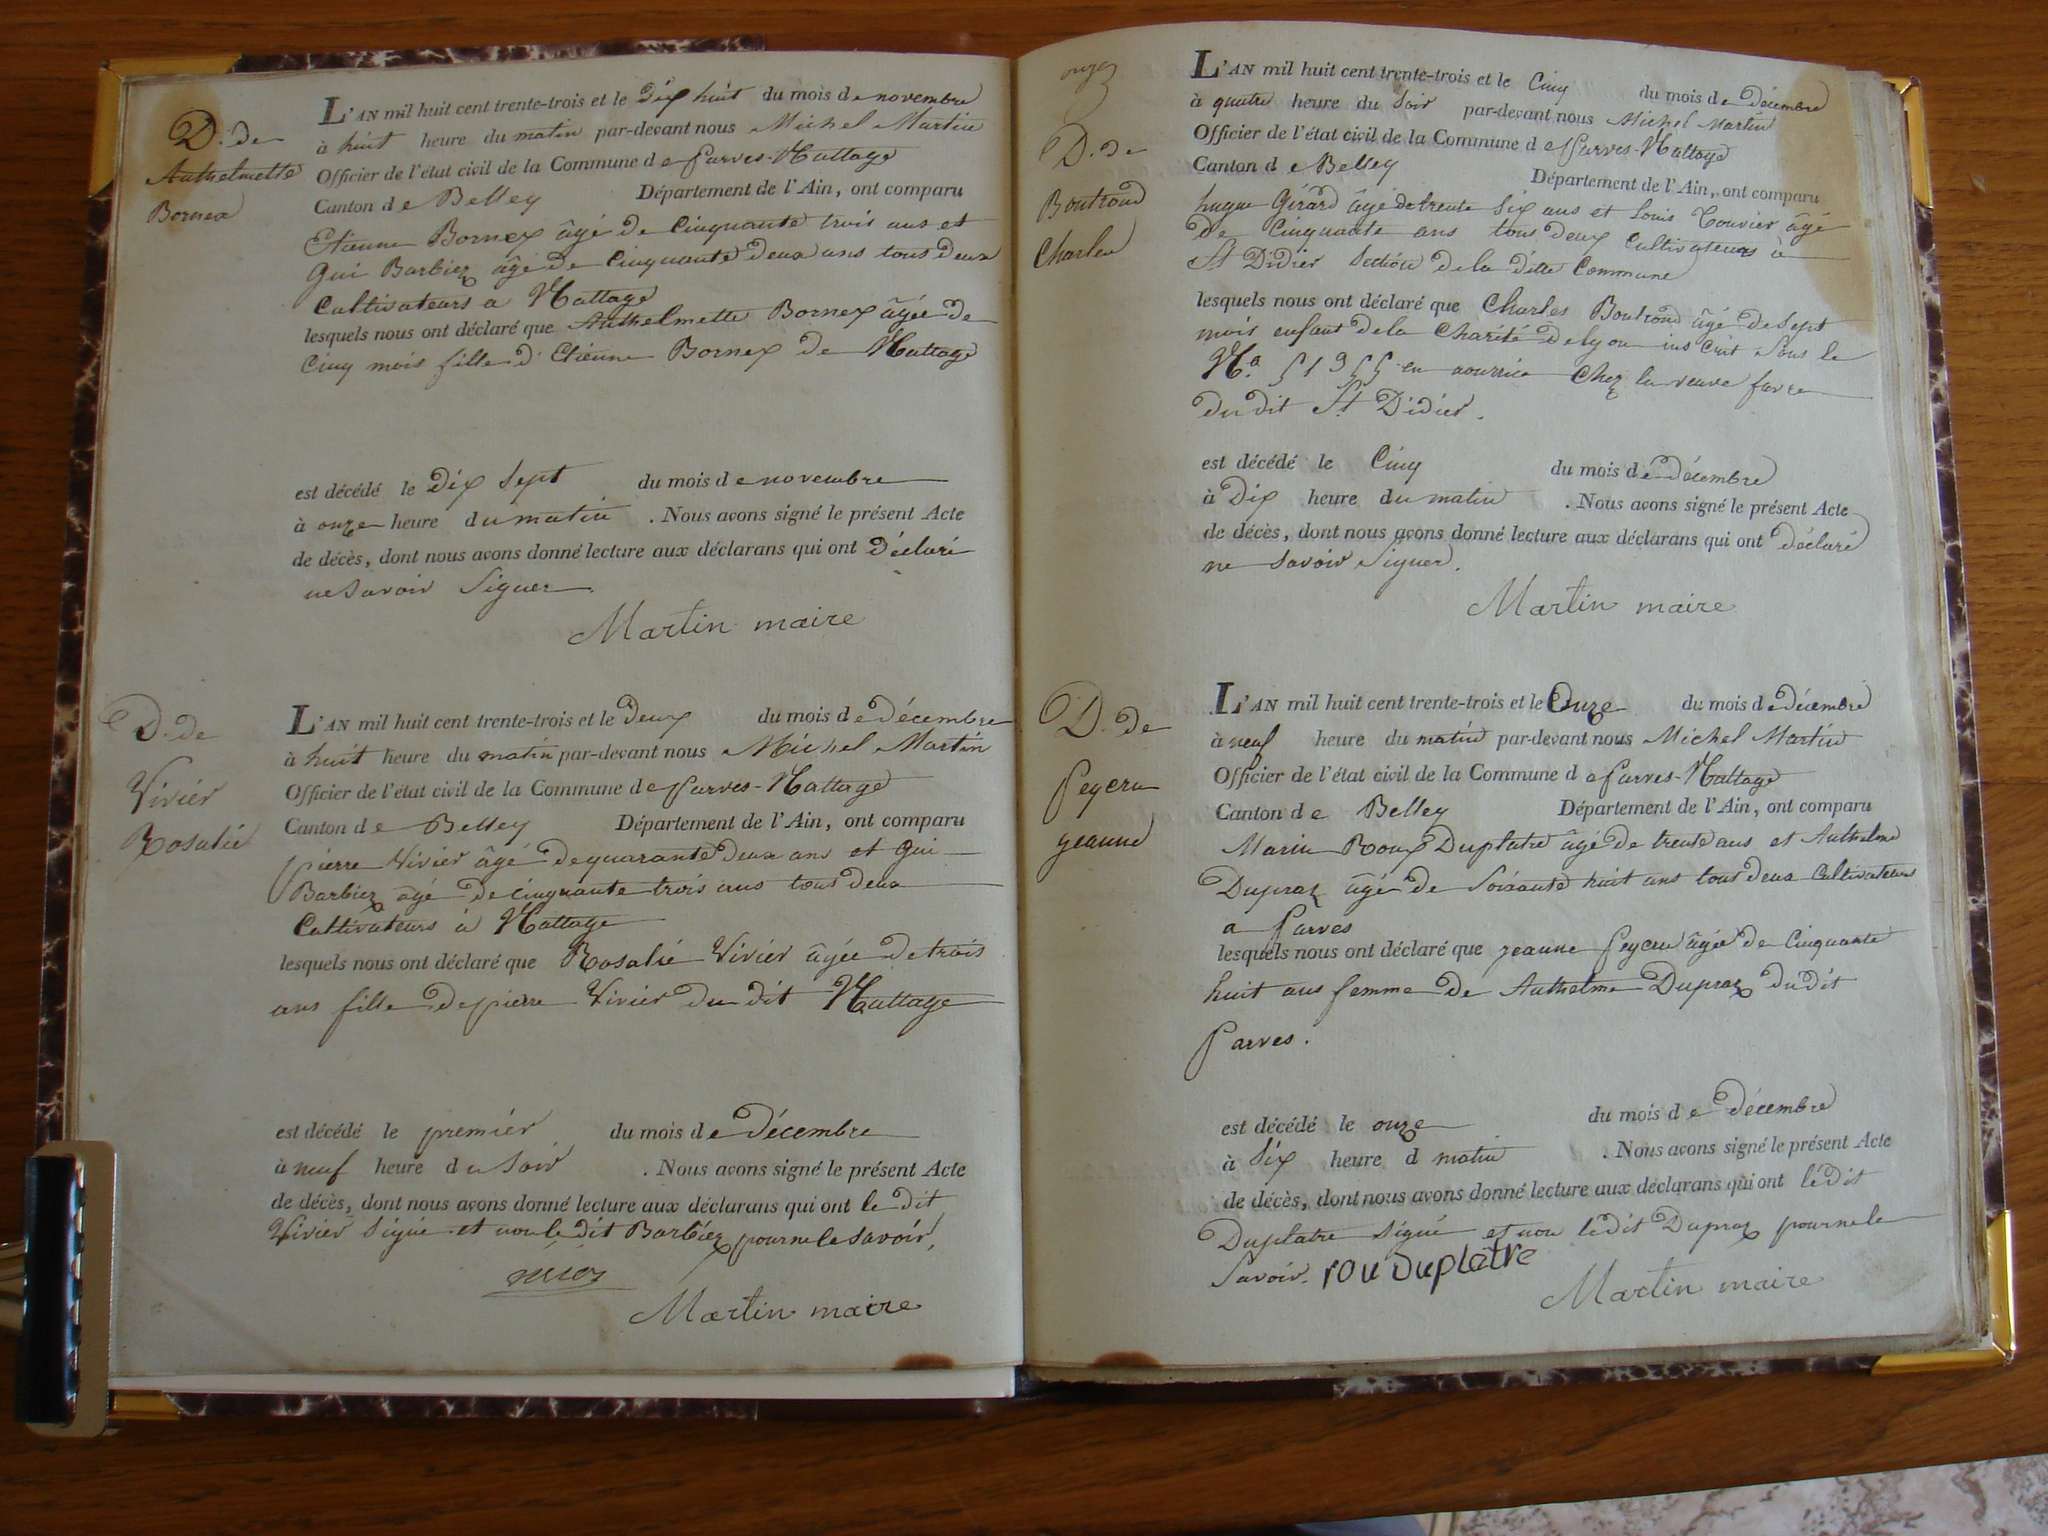 D. de
Authelmette
Bornex
L'AN mil huit cent trente-trois et le dix huit du mois de novembre
à huit heure du matin par-devant nous Michel Martin
Officier de l'état civil de la Commune de Parves-Nattage
Canton de Belley Département de l'Ain, ont comparu
Etienne Bornex âgé de Cinquante trois ans et
Gui Barbier âgé de Cinquante deux ans tous deux
Cultivateurs a Nattage
lesquels nous ont déclaré que Authelmette Bornex âgée de
Cinq mois fille d'Etienne Bornex de Nattage
est décédé le dix sept du mois de novembre
à onze heure du matin . Nous avons signé le présent Acte
de décès, dont nous avons donné lecture aux déclarans qui ont déclaré
ne savoir signer
Martin maire
D. de
Vivier
Rosalie
L'AN mil huit cent trente-trois et le deux du mois de décembre
à huit heure du matin par-devant nous Michel Martin
Officier de l'état civil de la Commune de Parves-Nattage
Canton de Belley Département de l'Ain, ont comparu
pierre Vivier âgé de quarante deux ans et Gui
Barbier âgé de cinquante trois ans tous deux
Cultivateurs à Nattage
lesquels nous ont déclaré que Rosalie Vivier âgée de trois
ans fille de pierre Vivier du dit Nattage
est décédé le premier du mois de décembre
à neuf heure du soir . Nous avons signé le présent Acte
de décès, dont nous avons donné lecture aux déclarans qui ont le dit
Vivier signé et non le dit Barbier pour ne le savoir,
Martin maire
onze
D. de
Boutrond
Charles
L'AN mil huit cent trente-trois et le Cinq du mois de décembre
à quatre heure du soir par-devant nous Michel Martin
Officier de l'état civil de la Commune de Parves-Nattage
Canton de Belley Département de l'Ain, ont comparu
hugue Girard âgé de trente six ans et Louis Touvier âgé
de Cinquante ans tous deux Cultivateurs à
St Didier Section de la ditte Commune
lesquels nous ont déclaré que Charles Boutrond âgé de sept
mois enfant de la Charité de lyon inscrit sous le
No. 51955 en nourrice Chez la veuve favre
du dit St Didier.
est décédé le Cinq du mois de décembre
à Dix heure du matin . Nous avons signé le présent Acte
de décès, dont nous avons donné lecture aux déclarans qui ont déclaré
ne savoir signer.
Martin maire
D. de
Peycru
jeanne
L'AN mil huit cent trente-trois et le Onze du mois de décembre
à neuf heure du matin par-devant nous Michel Martin
Officier de l'état civil de la Commune de Parves-Nattage
Canton de Belley Département de l'Ain, ont comparu
Marin Roux Duplatre âgé de trente ans et Authelme
Dupraz âgé de Soixante huit ans tous deux Cultivateurs
a Parves
lesquels nous ont déclaré que jeanne Peycru âgée de Cinquante
huit ans femme de Authelme Dupraz du dit
Parves.
est décédé le onze du mois de décembre
à Six heure d matin . Nous avons signé le présent Acte
de décès, dont nous avons donné lecture aux déclarans qui ont le dit
Duplatre signé et non le dit Dupraz pour ne le
Savoir. rou Duplatre
Martin maire